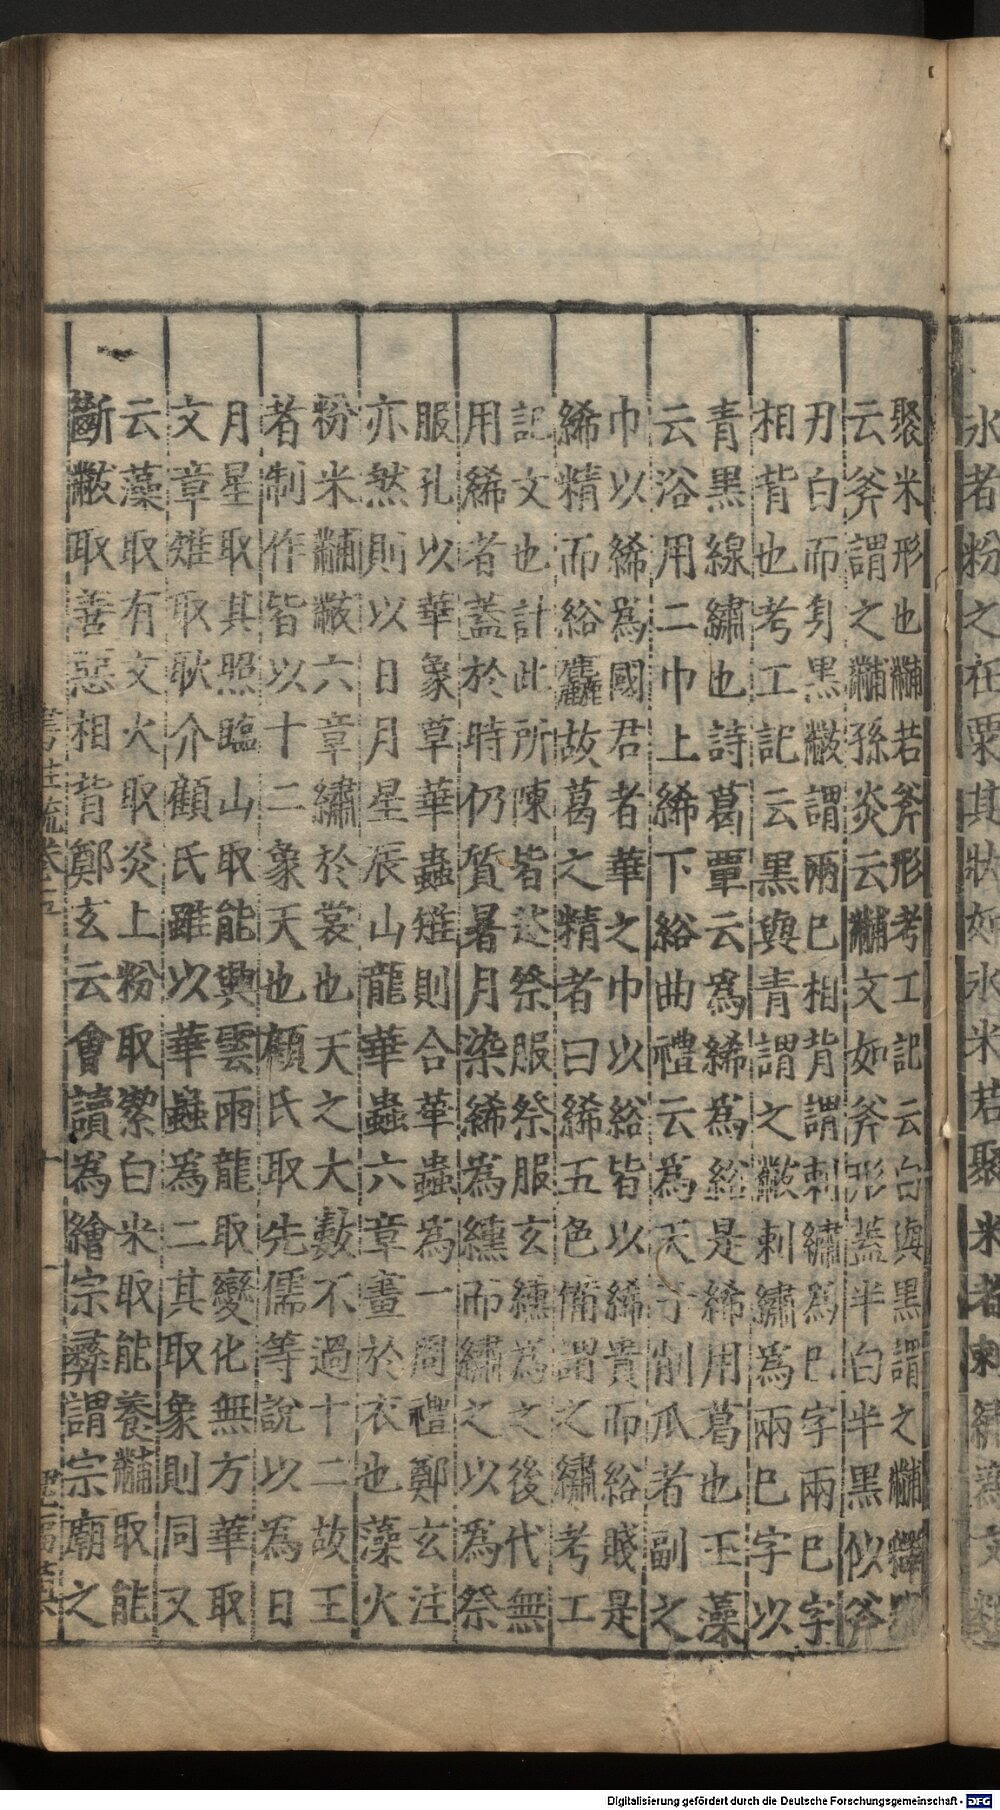 氷者粉之在粟其狀如氷米若聚米者刺繡為文類
聚米形也黼若斧形考工記云白與黑謂之黼釋器
云斧謂之黼孫炎云黼文如斧形蓋半白半黑似斧
刃白而身黑黻謂兩巳相背謂刺繡為巳字兩巳字
相背也考工記云黑與青謂之黻刺繡為兩巳字以
青黑線繡也詩葛覃云為絺為綌是絺用葛也玉藻
云浴用二巾上絺下綌曲禮云為天子削瓜者副之
巾以絺為國君者華之巾以綌皆以絺貴而綌賤是
絺精而綌麤故葛之精者曰絺五色備謂之繡考工
記文也計此所陳皆述祭服祭服玄纁為之後代無
用絺者蓋於時仍質暑月染絺為纁而繡之以為祭
服孔以華象草華蟲雉則合華蟲為一周禮鄭玄注
亦然則以日月星辰山龍華蟲六章畫於衣也藻火
粉米黼黻六章繡於裳也天之大數不過十二故王
者制作皆以十二象天也顧氏取先儒等說以為日
月星取其照臨山取能興雲雨龍取變化無方華取
文章雉取耿介顧氏雖以華蟲為二其取象則同又
云藻取有文火取炎上粉取絜白米取能養黼取能
斷黻取善惡相背鄭玄云會讀為繪宗彝謂宗廟之
書注疏卷五
十一
Digitalisierung gefördert durch die Deutsche Forschungsgemeinschaft - DFG